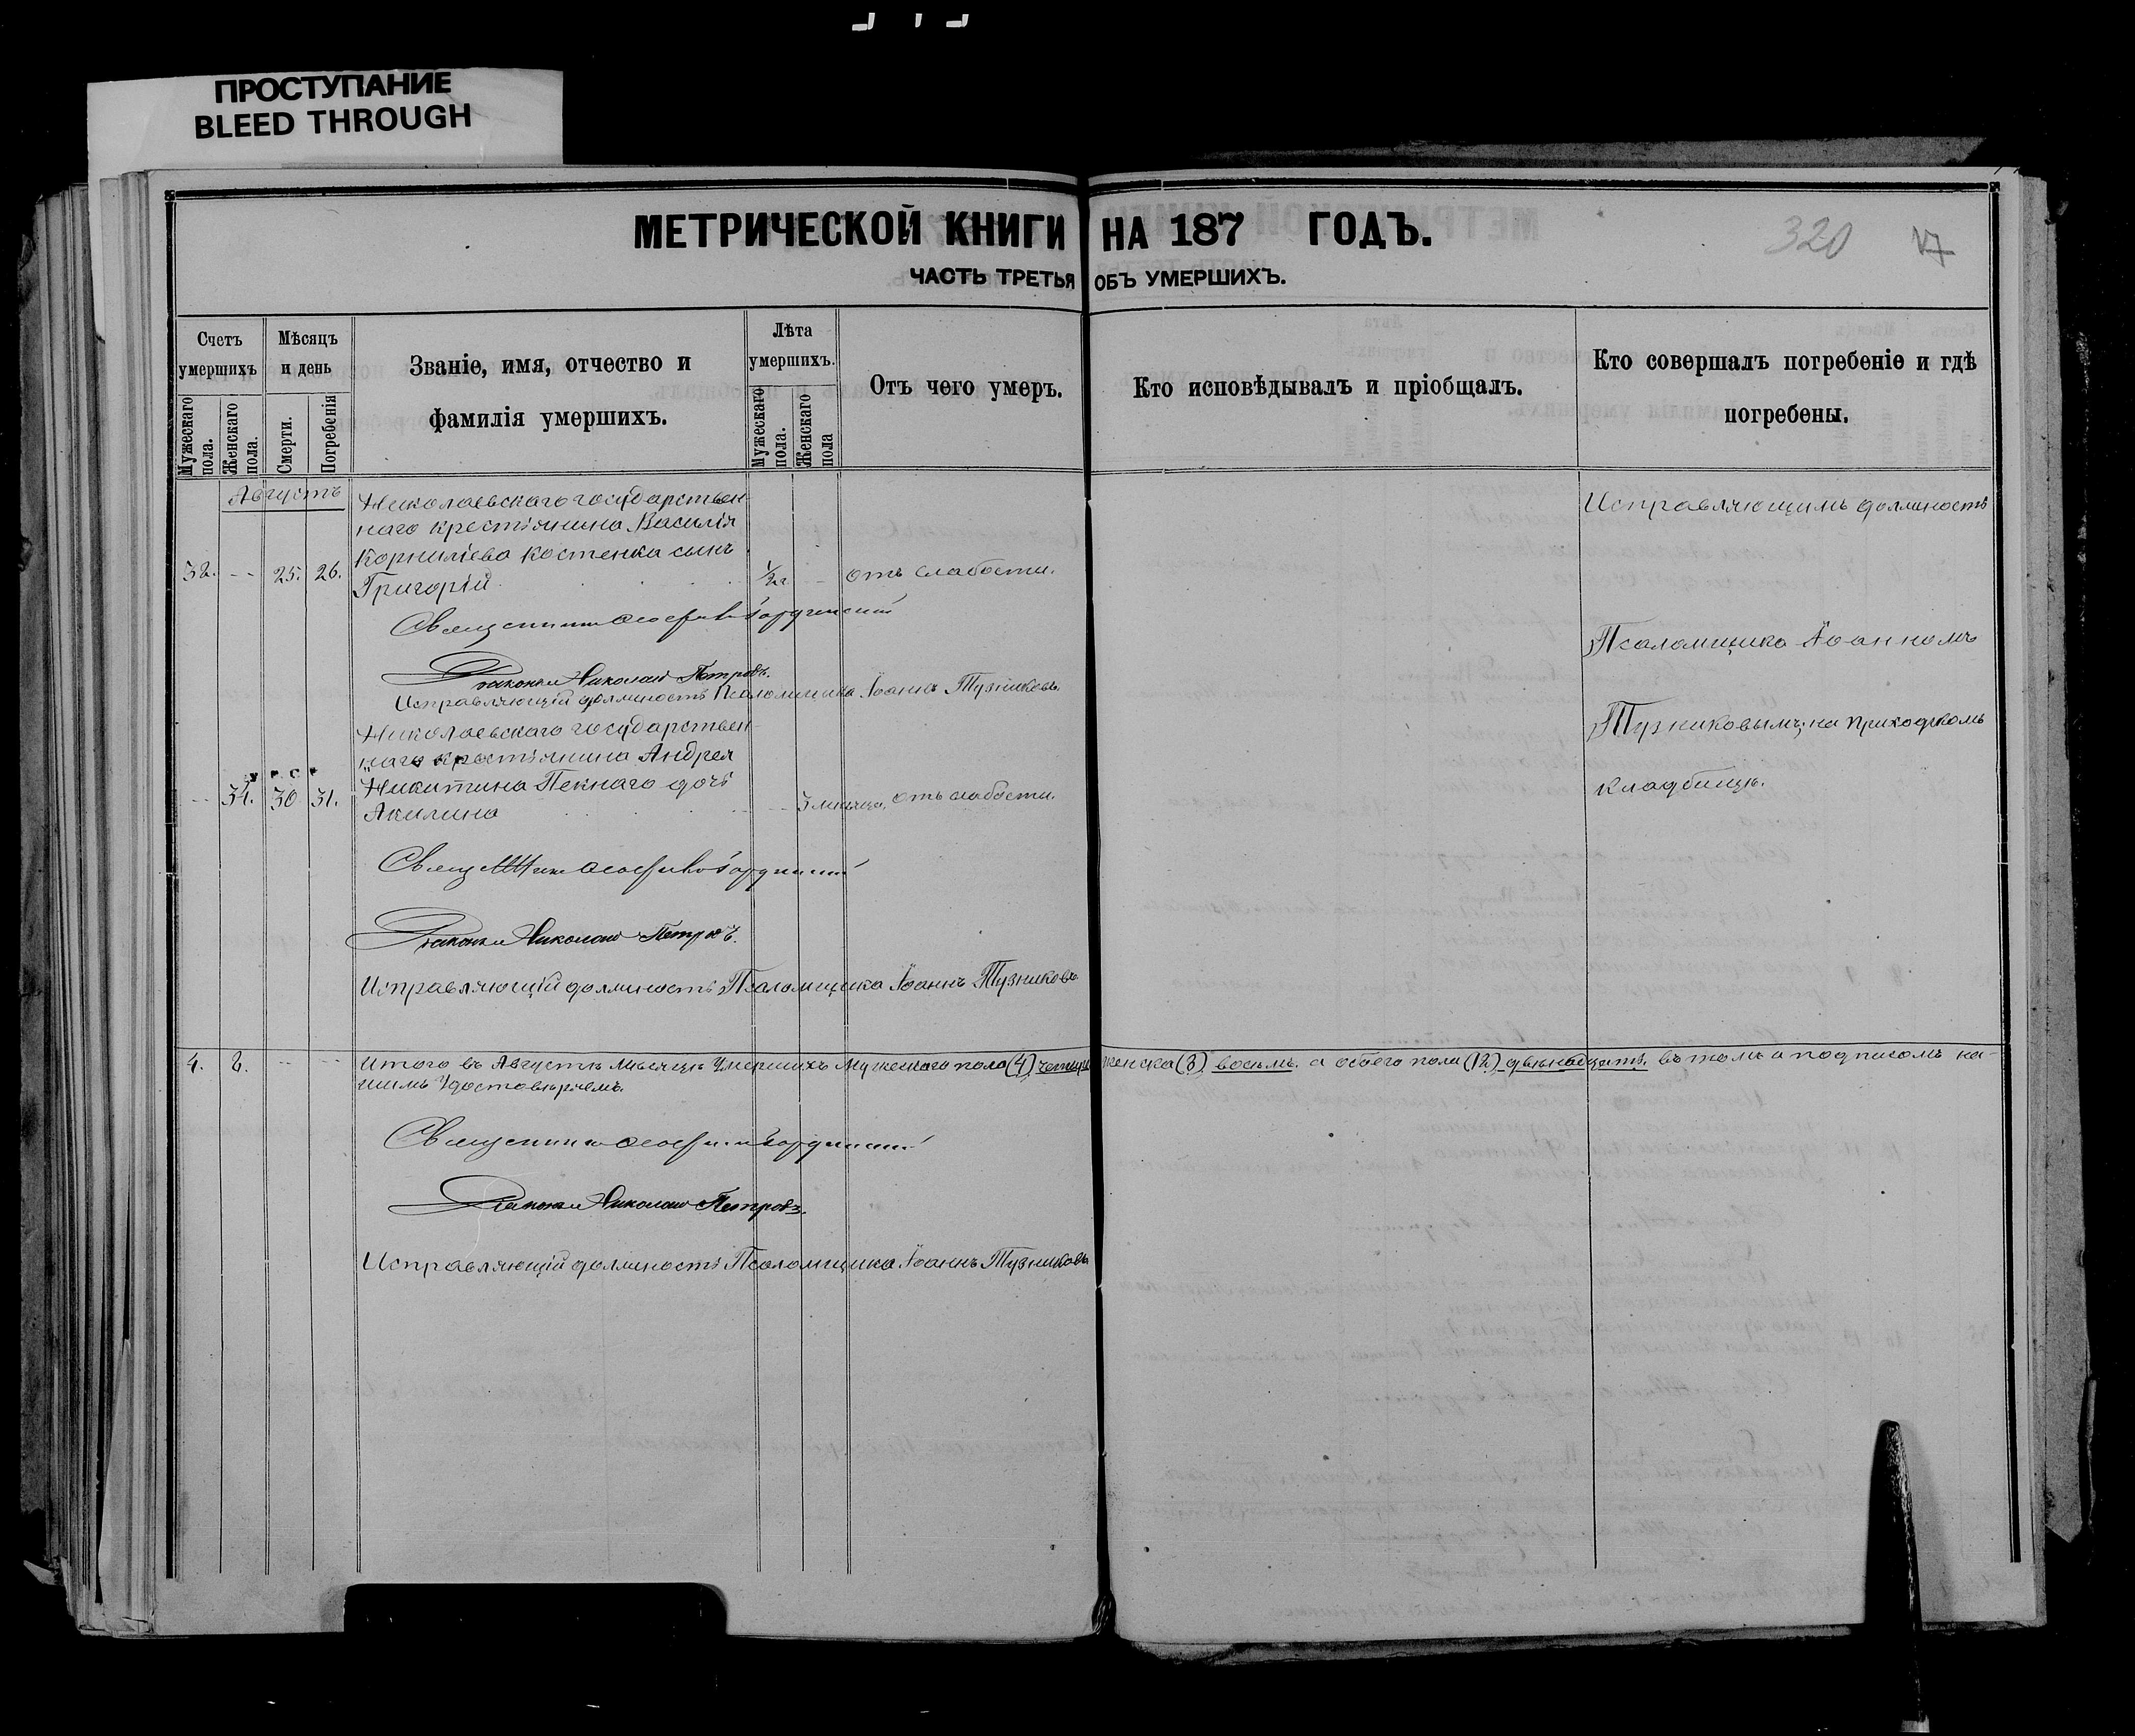 ПРОСТУПАНИЕ
BLEED THROUGH
МЕТРИЧЕСКОЙ КНИГИ НА 187 ГОДЪ.
320
ЧАСТЬ ТРЕТЬЯ ОБЪ УМЕРШИХЪ.
Счетъ умершихъ
Мужескаго пола.
Женскаго пола.
Мѣсяцъ и день
Смерти.
Погребенія
Званіе, имя, отчество и
фамилія умершихъ.
Лѣта умершихъ.
Мужескаго пола.
Женскаго пола
Отъ чего умеръ.
Кто исповѣдывалъ и пріобщалъ.
Кто совершалъ погребеніе и гдѣ
погребены.
Августъ
Николаевскаго государствен-
наго крестьянина Василія
Корниліева Костенка сынъ
32. - - 25. 26. Григорій 1/2 г - отъ слабости.
Священникъ
Діаконъ Николай Петровъ.
Исправляющій должность Псаломщика Іоаннъ Тузниковъ.
Николаевскаго государствен-
наго крестьянина Андрея
Никитина Пекнаго дочь
-- 34. 30 31. Акилина -- 3 мѣсяца, отъ слабости.
Священникъ
Діаконъ Николай Петровъ.
Исправляющій должность Псаломщика Іоаннъ Тузниковъ
Исправляющимъ должность
Псаломщика Іоанномъ
Тузниковымъ; на приходскомъ
кладбищѣ.
4. 8. -- -- Итого въ Августѣ мѣсяцѣ умершихъ мужескаго пола (4) четыре женска (8) восемь. а обоего пола (12) двѣнадцать. въ томъ и подписомъ на-
шимъ удостовѣряемъ.
Священникъ
Діаконъ Николай Петровъ.
Исправляющій должность Псаломщика Іоаннъ Тузниковъ